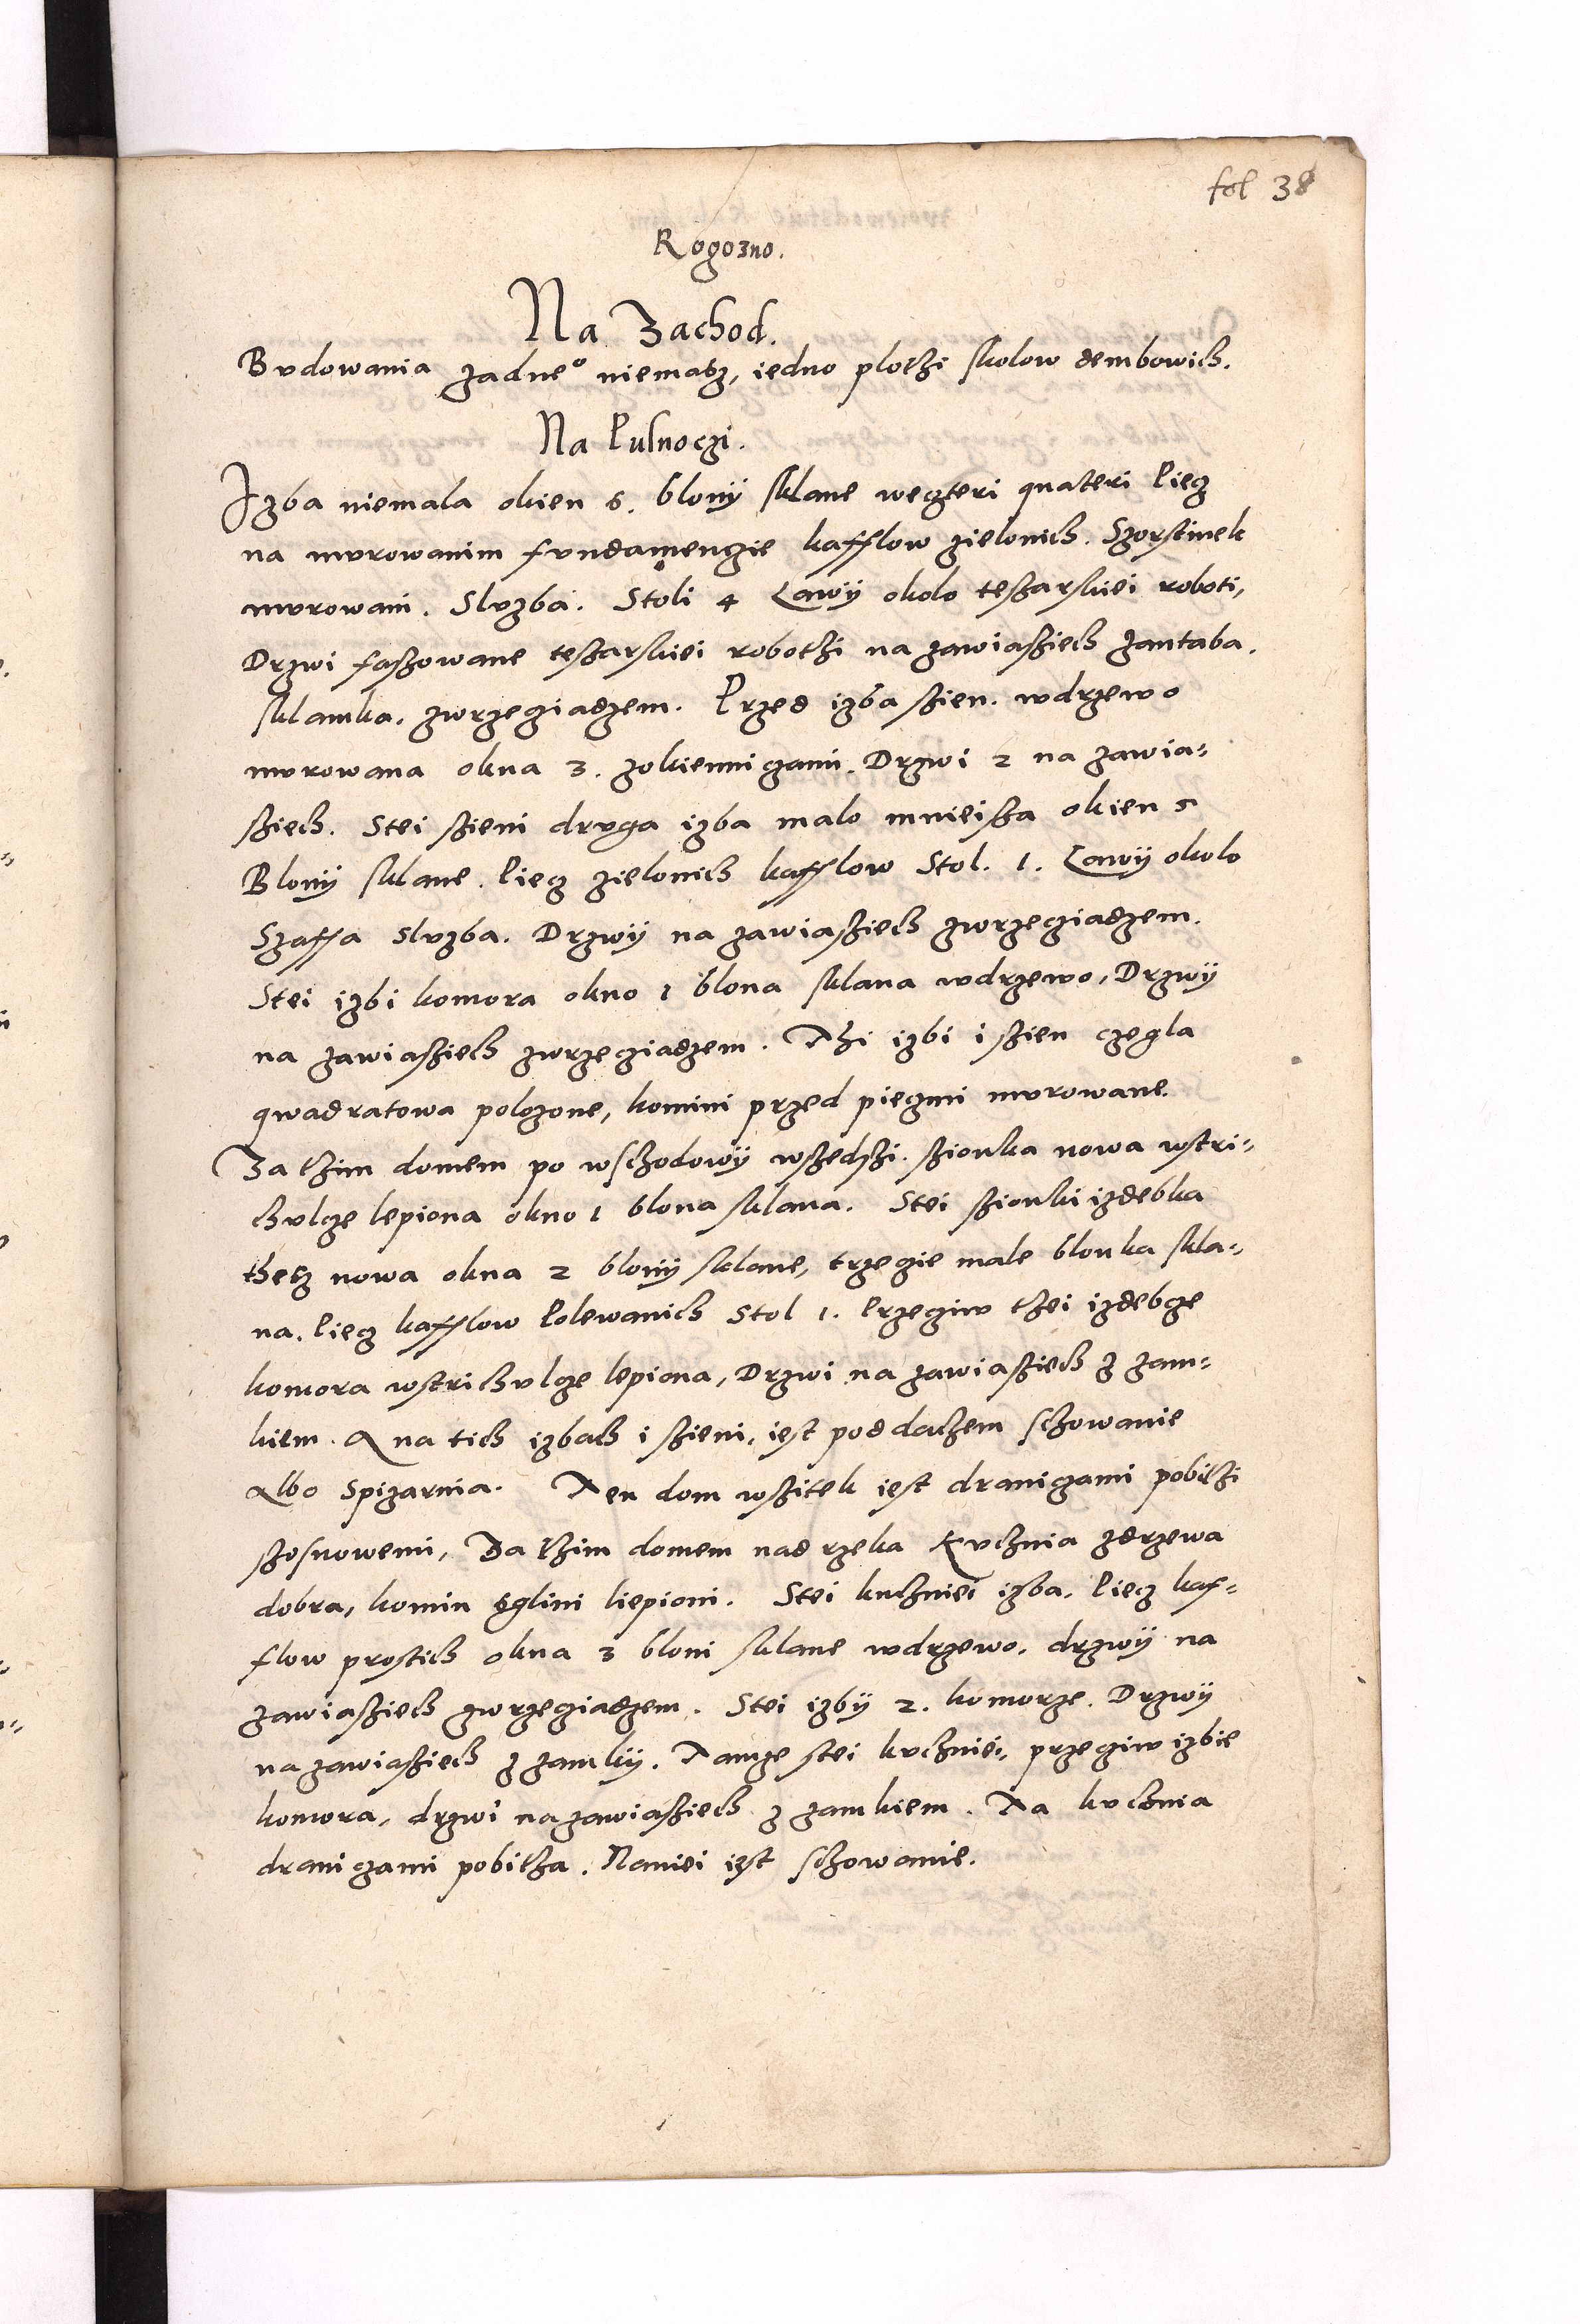 fol 38
Rogozno.
Na Zachod.
Bvdowania zadneº niemasz, iedno plothi skolow dembowich.
Na Pulnoczi.
Izba niemala okien 6. blonÿ sklane wczteri quateri Piecz
na mvrowanim fvndamenczie kafflow zielonich. Szorstinek
mvrowani. Slvzba. Stoli 4 Lawÿ okolo tesharskiei roboti,
Drzwi fashowane tesharskiei robothi na zawiashiech zantaba.
sklamka. zwrzecziadzem. Przed izba shien. wdrzewo
mvrowana okna 3. zokienniczami. Drzwi 2 na zawia-
shiech. Stei shieni drvga izba malo mnieisha okien 5
Blonÿ sklane. Piecz zielonich kafflow Stol. 1. Lawÿ okolo
Szaffa slvzba. Drzwÿ na zawiashiech zwrzecziadzem.
Stei izbi komora okno 1 blona sklana wdrzewo, Drzwÿ
na zawiashiech zwrzecziadzem. Thi izbi i shien czegla
qwadratowa polozone, komini przed pieczmi mvrowane.
Za thim domem po wschodowÿ wshedshi. shionka nowa wstri-
chvlcze lepiona okno 1 blona sklana. Stei shionki izdebka
thesz nowa okna 2 blonÿ sklane, trzecie male blonka skla-
na. Piecz kafflow Polewanich Stol 1. Przeciw thei izdebcze
komora wstrichvlcze lepiona, Drzwi na zawiashiech z zam-
kiem. A na tich izbach i shieni, iest pod dachem schowanie
Albo Spizarnia. Ten dom wshitek iest draniczami pobithi
shosnowemi, Za thim domem nad rzeka Kvchnia zdrzewa
dobra, komin zglini liepioni. Stei kuchniei izba. Piecz kaf-
flow prostich okna 3 bloni sklane wdrzewo. drzwÿ na
zawiashiech zwrzecziadzem. Stei izbÿ 2. komorze. Drzwÿ
na zawiashiech z zamkÿ. Tamze stei kvchniei, przeciw izbie
komora, drzwi na zawiashiech z zamkiem. Ta kvchnia
draniczami pobitha. Naniei iest schowanie.